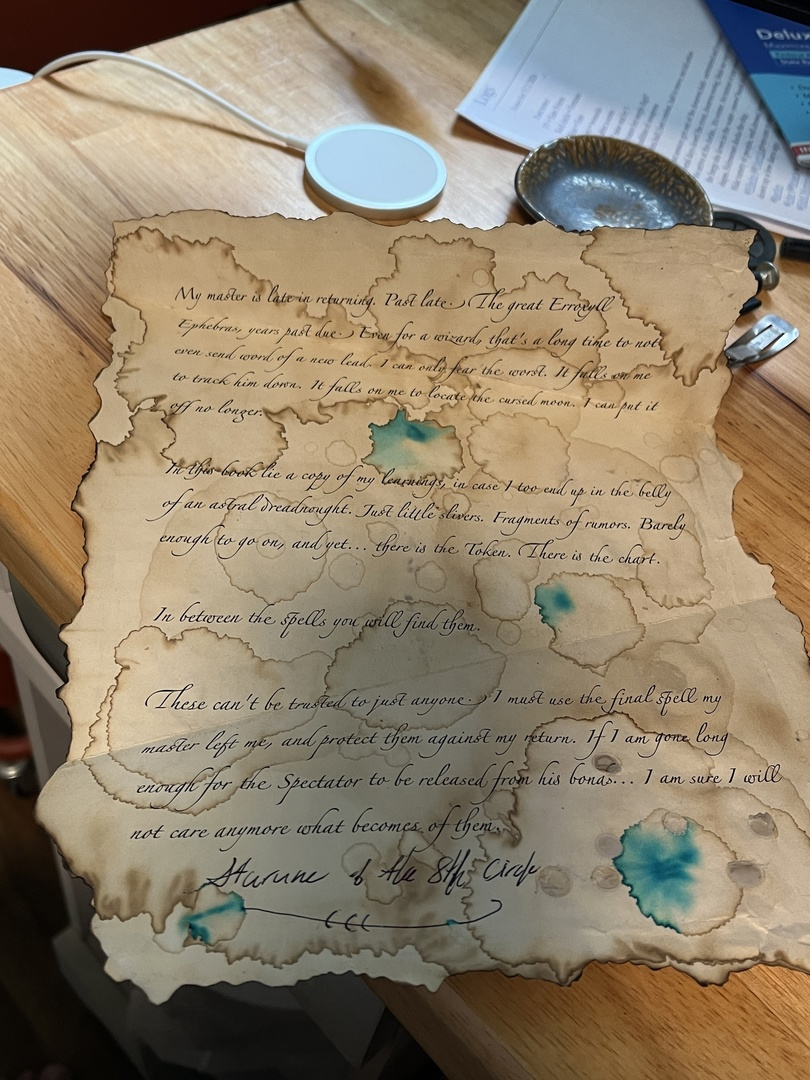 Delux
Logs
My master is late in returning. Past late. The great Erroxyll
Ephebras, years past due. Even for a wizard, that's a long time to not
even send word of a new lead. I can only fear the worst. It falls on me
to track him down. It falls on me to locate the cursed moon. I can put it
off no longer.
In this book lie a copy of my learnings, in case I too end up in the belly
of an astral dreadnought. Just little slivers. Fragments of rumors. Barely
enough to go on, and yet... there is the Token. There is the chart.
In between the spells you will find them.
These can't be trusted to just anyone. I must use the final spell my
master left me, and protect them against my return. If I am gone long
enough for the Spectator to be released from his bonds... I am sure I will
not care anymore what becomes of them.
of the 8th Circle